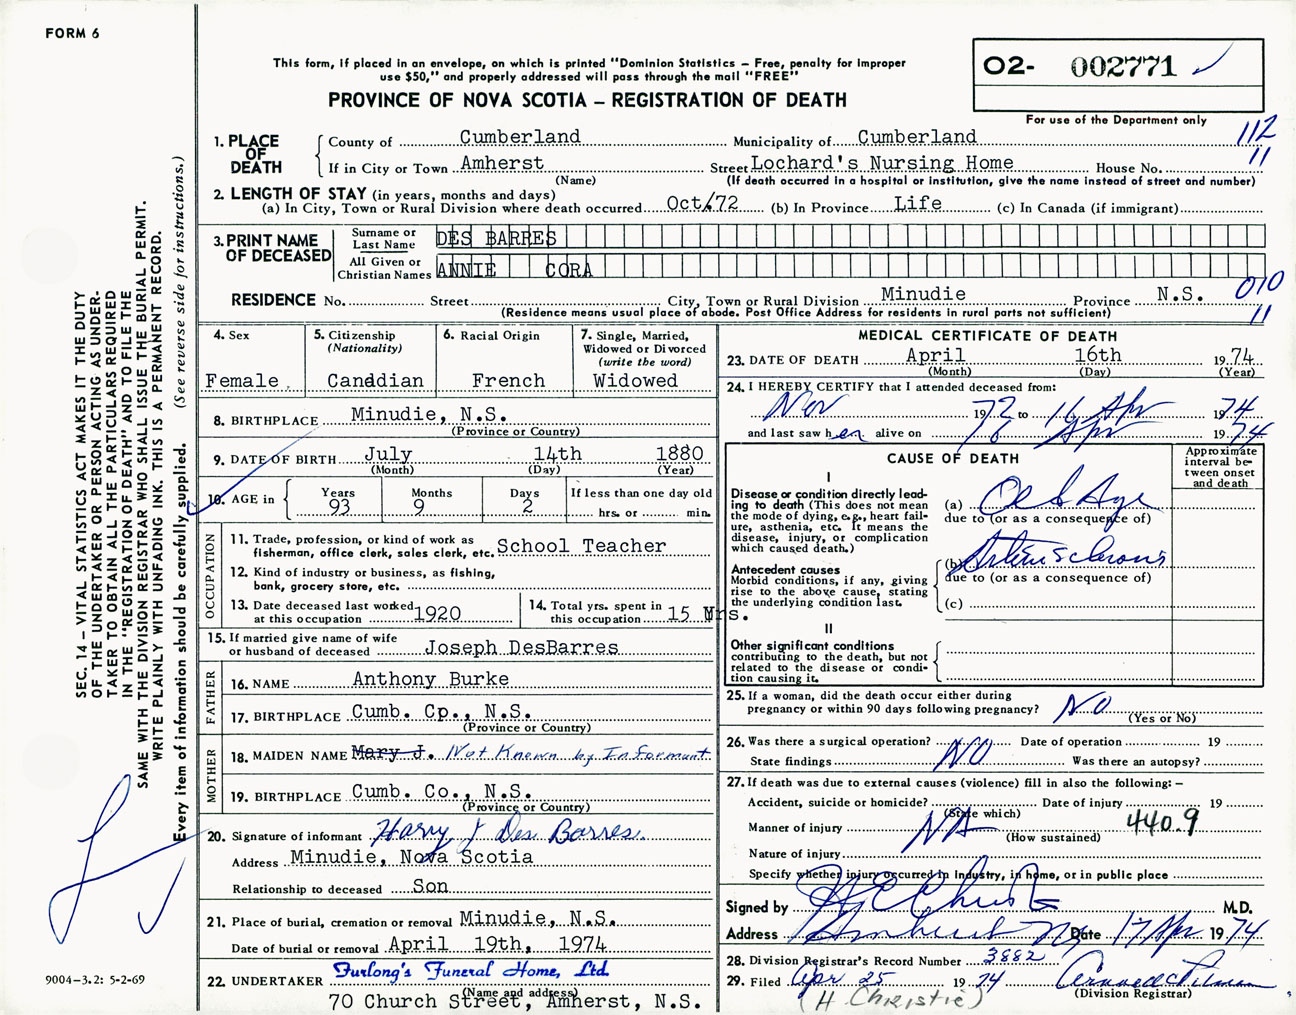 FORM 6
This form, if placed in an envelope, on which is printed "Dominion Statistics – Free, penalty for improper
use $50," and properly addressed will pass through the mail "FREE"
PROVINCE OF NOVA SCOTIA – REGISTRATION OF DEATH
O2- 002771
For use of the Department only
SEC. 14 – VITAL STATISTICS ACT MAKES IT THE DUTY
OF THE UNDERTAKER OR PERSON ACTING AS UNDER-
TAKER TO OBTAIN ALL THE PARTICULARS REQUIRED
IN THE "REGISTRATION OF DEATH" AND TO FILE THE
SAME WITH THE DIVISION REGISTRAR WHO SHALL ISSUE THE BURIAL PERMIT.
WRITE PLAINLY WITH UNFADING INK. THIS IS A PERMANENT RECORD.
Every item of Information should be carefully supplied. (See reverse side for instructions.)
1. PLACE OF DEATH
County of Cumberland Municipality of Cumberland 112
If in City or Town Amherst Street Lochard's Nursing Home House No. 11
(Name) (If death occurred in a hospital or institution, give the name instead of street and number)
2. LENGTH OF STAY (in years, months and days)
(a) In City, Town or Rural Division where death occurred Oct/72 (b) In Province Life (c) In Canada (if immigrant)
3. PRINT NAME OF DECEASED
Surname or Last Name DES BARRES
All Given or Christian Names ANNIE CORA
RESIDENCE No. Street City, Town or Rural Division Minudie Province N.S. 010
(Residence means usual place of abode. Post Office Address for residents in rural parts not sufficient) 11
4. Sex
Female
5. Citizenship
(Nationality)
Canadian
6. Racial Origin
French
7. Single, Married,
Widowed or Divorced
(write the word)
Widowed
8. BIRTHPLACE Minudie, N.S.
(Province or Country)
9. DATE OF BIRTH July 14th 1880
(Month) (Day) (Year)
10. AGE in Years 93 Months 9 Days 2 If less than one day old
hrs. or min.
OCCUPATION
11. Trade, profession, or kind of work as
fisherman, office clerk, sales clerk, etc. School Teacher
12. Kind of industry or business, as fishing,
bank, grocery store, etc.
13. Date deceased last worked
at this occupation 1920
14. Total yrs. spent in
this occupation 15 Yrs.
15. If married give name of wife
or husband of deceased Joseph DesBarres
FATHER
16. NAME Anthony Burke
17. BIRTHPLACE Cumb. Cp., N.S.
(Province or Country)
MOTHER
18. MAIDEN NAME Mary J. Not Known by Informant
19. BIRTHPLACE Cumb. Co., N.S.
(Province or Country)
20. Signature of informant Harry J Des Barres
Address Minudie, Nova Scotia
Relationship to deceased Son
21. Place of burial, cremation or removal Minudie, N.S.
Date of burial or removal April 19th, 1974
22. UNDERTAKER Furlong's Funeral Home, Ltd.
(Name and address)
70 Church Street, Amherst, N.S.
9004-3.2: 5-2-69
MEDICAL CERTIFICATE OF DEATH
23. DATE OF DEATH April 16th 1974
(Month) (Day) (Year)
24. I HEREBY CERTIFY that I attended deceased from:
Nov 1972 to 16 Apr 1974
and last saw her alive on 16 Apr 1974
CAUSE OF DEATH
Approximate
interval be-
tween onset
and death
I
Disease or condition directly lead-
ing to death (This does not mean
the mode of dying, e.g., heart fail-
ure, asthenia, etc. It means the
disease, injury, or complication
which caused death.)
(a) Old Age
due to (or as a consequence of)
Antecedent causes
Morbid conditions, if any, giving
rise to the above cause, stating
the underlying condition last.
(b) Arteriosclerosis
due to (or as a consequence of)
(c)
II
Other significant conditions
contributing to the death, but not
related to the disease or condi-
tion causing it.
25. If a woman, did the death occur either during
pregnancy or within 90 days following pregnancy? NO
(Yes or No)
26. Was there a surgical operation? NO Date of operation 19
State findings Was there an autopsy?
27. If death was due to external causes (violence) fill in also the following: –
Accident, suicide or homicide? Date of injury 19
(State which)
Manner of injury NA 440.9
(How sustained)
Nature of injury
Specify whether injury occurred in Industry, in home, or in public place
Signed by M.D.
Address Amherst NS Date 17 Apr 1974
28. Division Registrar's Record Number 3882
29. Filed Apr 25 1974
(Division Registrar)
(H Christie)